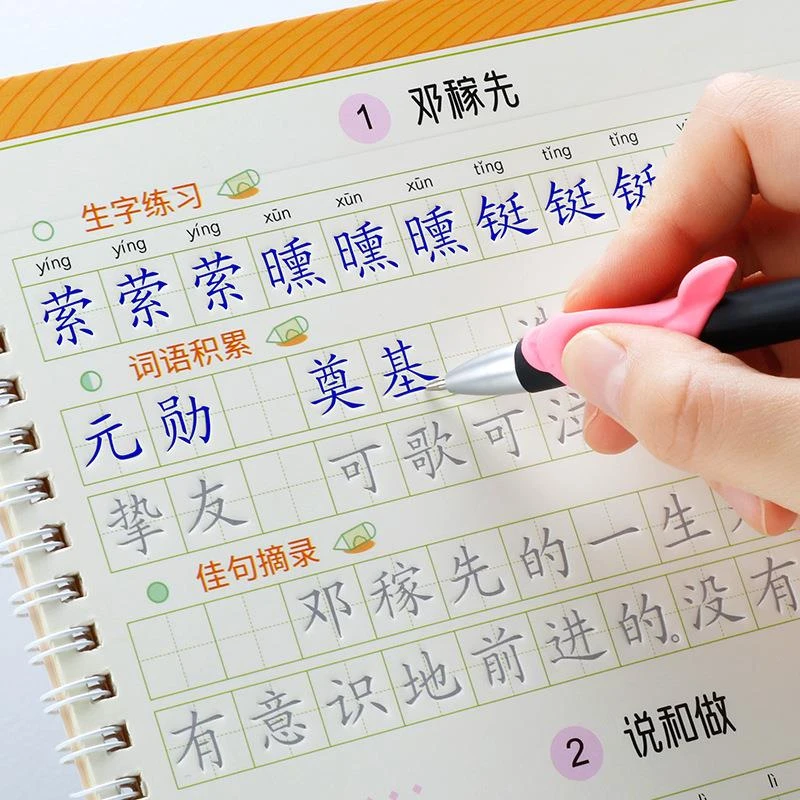 1 邓稼先
生字练习
yíng yíng yíng xūn xūn xūn tǐng tǐng tǐng
萦 萦 萦 曛 曛 曛 铤 铤 铤
词语积累
元勋 奠基
挚友 可歌可泣
佳句摘录
邓稼先的一生
有意识地前进的。没有
2 说和做
lì